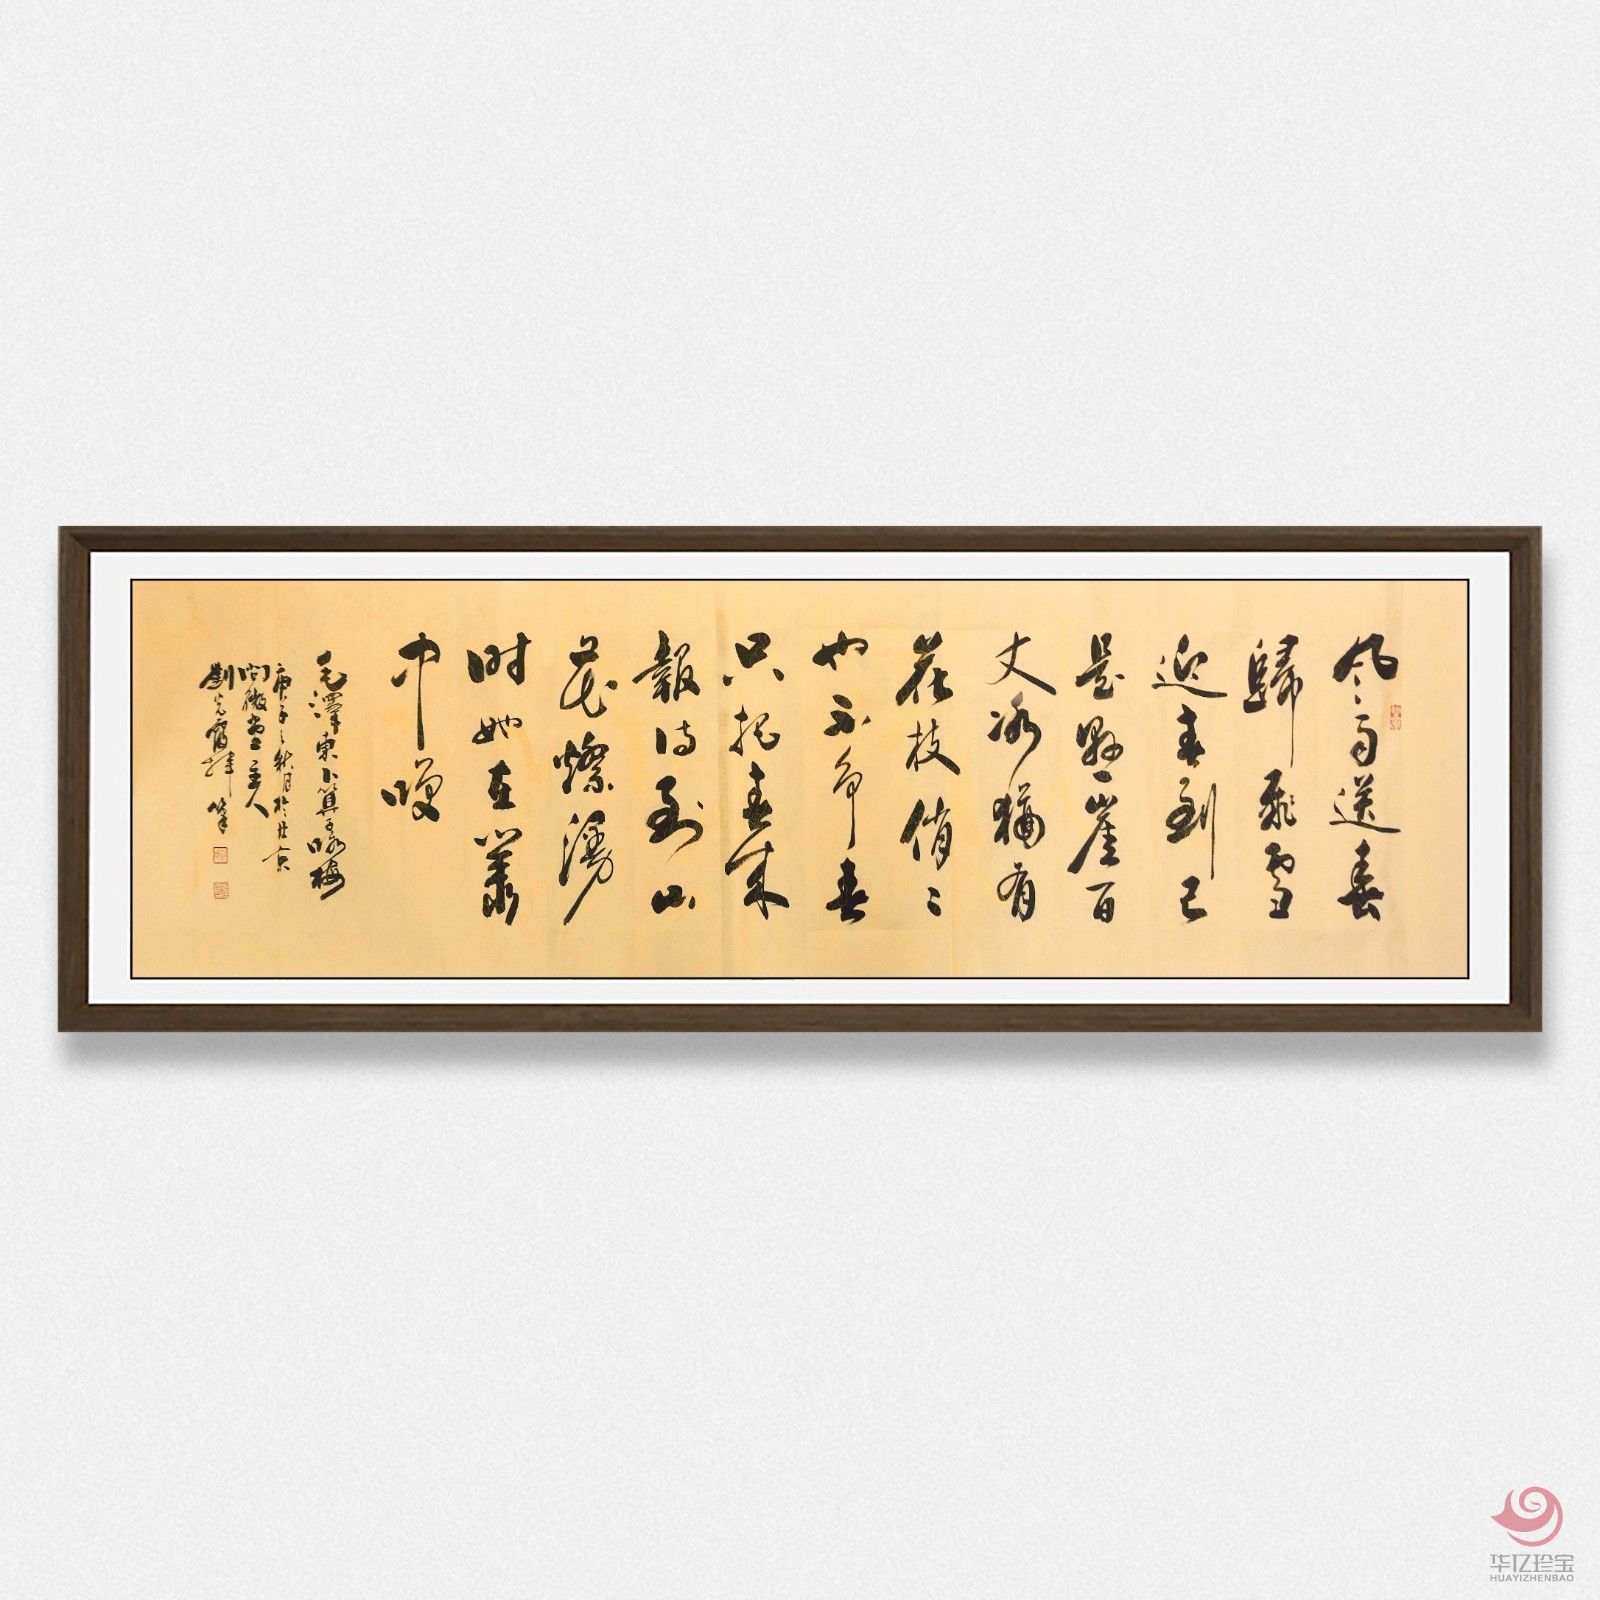 风雨送春
歸飛雪
迎春到已
是懸崖百
丈冰猶有
花枝俏〻
也不争春
只把春來
報待到山
花燦漫
时她在叢
中咲
毛澤東卜算子咏梅
庚子之秋月於北京
問微堂主人
劉光霞
华亿珍宝
HUAYIZHENBAO